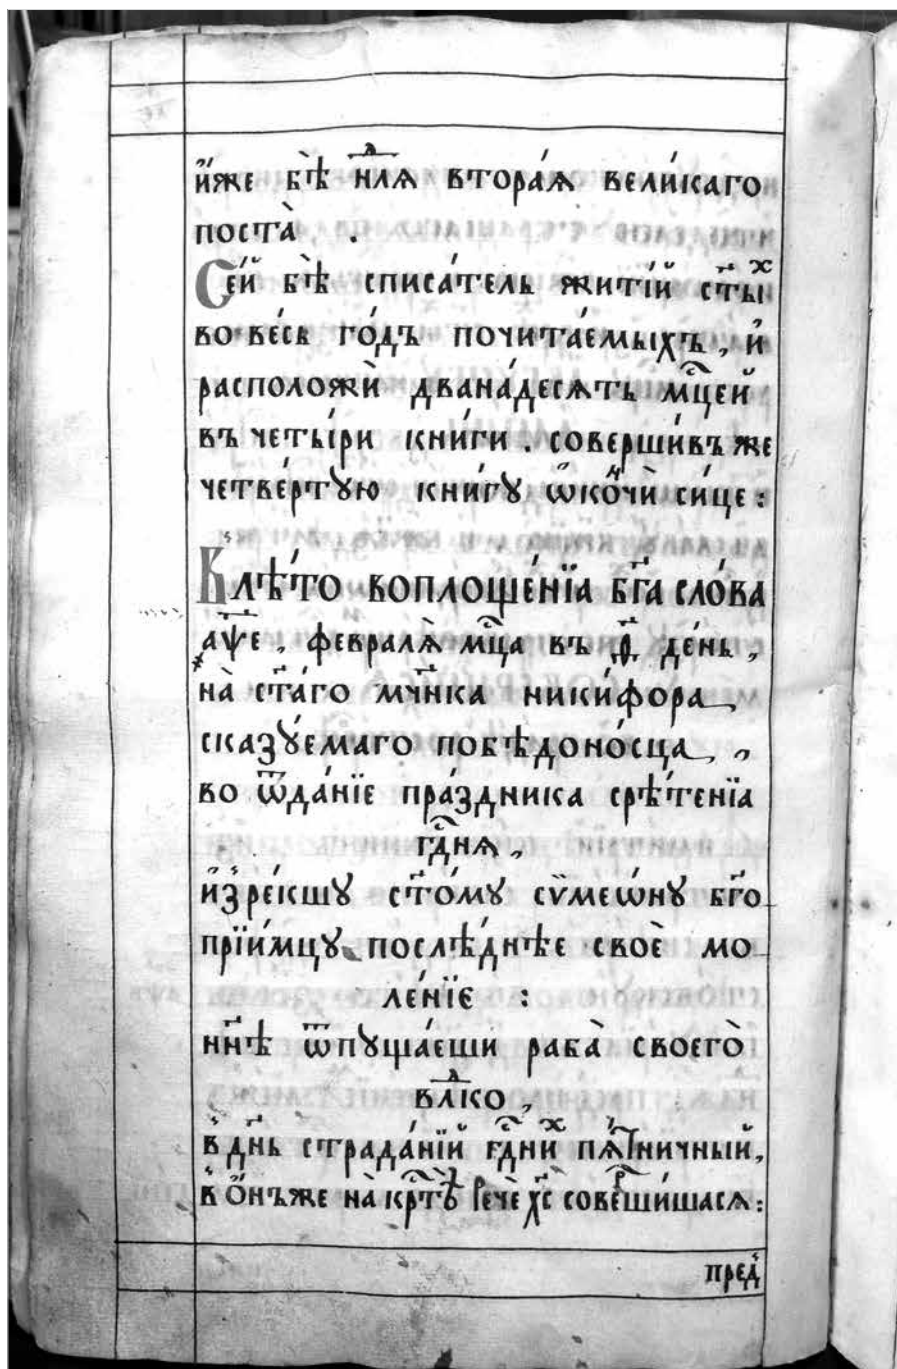 и҆́же бѣ̀ нлⷣѧ втораѧ́ вели́каго
поста̀ .
Се́й бѣ̀ списа́тель житі́й ст҃ыⷯ
во ве́сь го́дъ почита́емыхъ, и҆
расположѝ двана́десѧть мцⷭ҇ей
въ четы́ри кни́ги . соверши́въ же
четве́ртꙋю кни́гꙋ ѡ҆коⷩ҇чѝ си́це :
В лѣ́то воплоще́нїа бг҃а сло́ва
҂аѱ҃е , февралѧ̀ мцⷭ҇а въ ѳ҃ де́нь ,
на̀ ст҃а́го мч҃нка ники́фора ,
сказꙋ́емаго побѣдоно́сца ,
во ѿда́нїе пра́здника срѣ́тенїа
гдⷭ҇нѧ ,
и҆зре́кшꙋ ст҃о́мꙋ сѷмеѡ́нꙋ бг҃о
прїи́мцꙋ послѣ́днѣе своѐ мо
ле́нїе :
нн҃ѣ ѿпꙋща́еши раба̀ своего̀
влⷣко ,
в̾ дн҃ь страда́нїй гдⷭ҇ниⷯ пѧⷮничный ,
в̾ ѻ҆́ньже на̀ крⷭ҇тѣ̀ речѐ хс҃ совеⷬши́шасѧ :
преⷣ